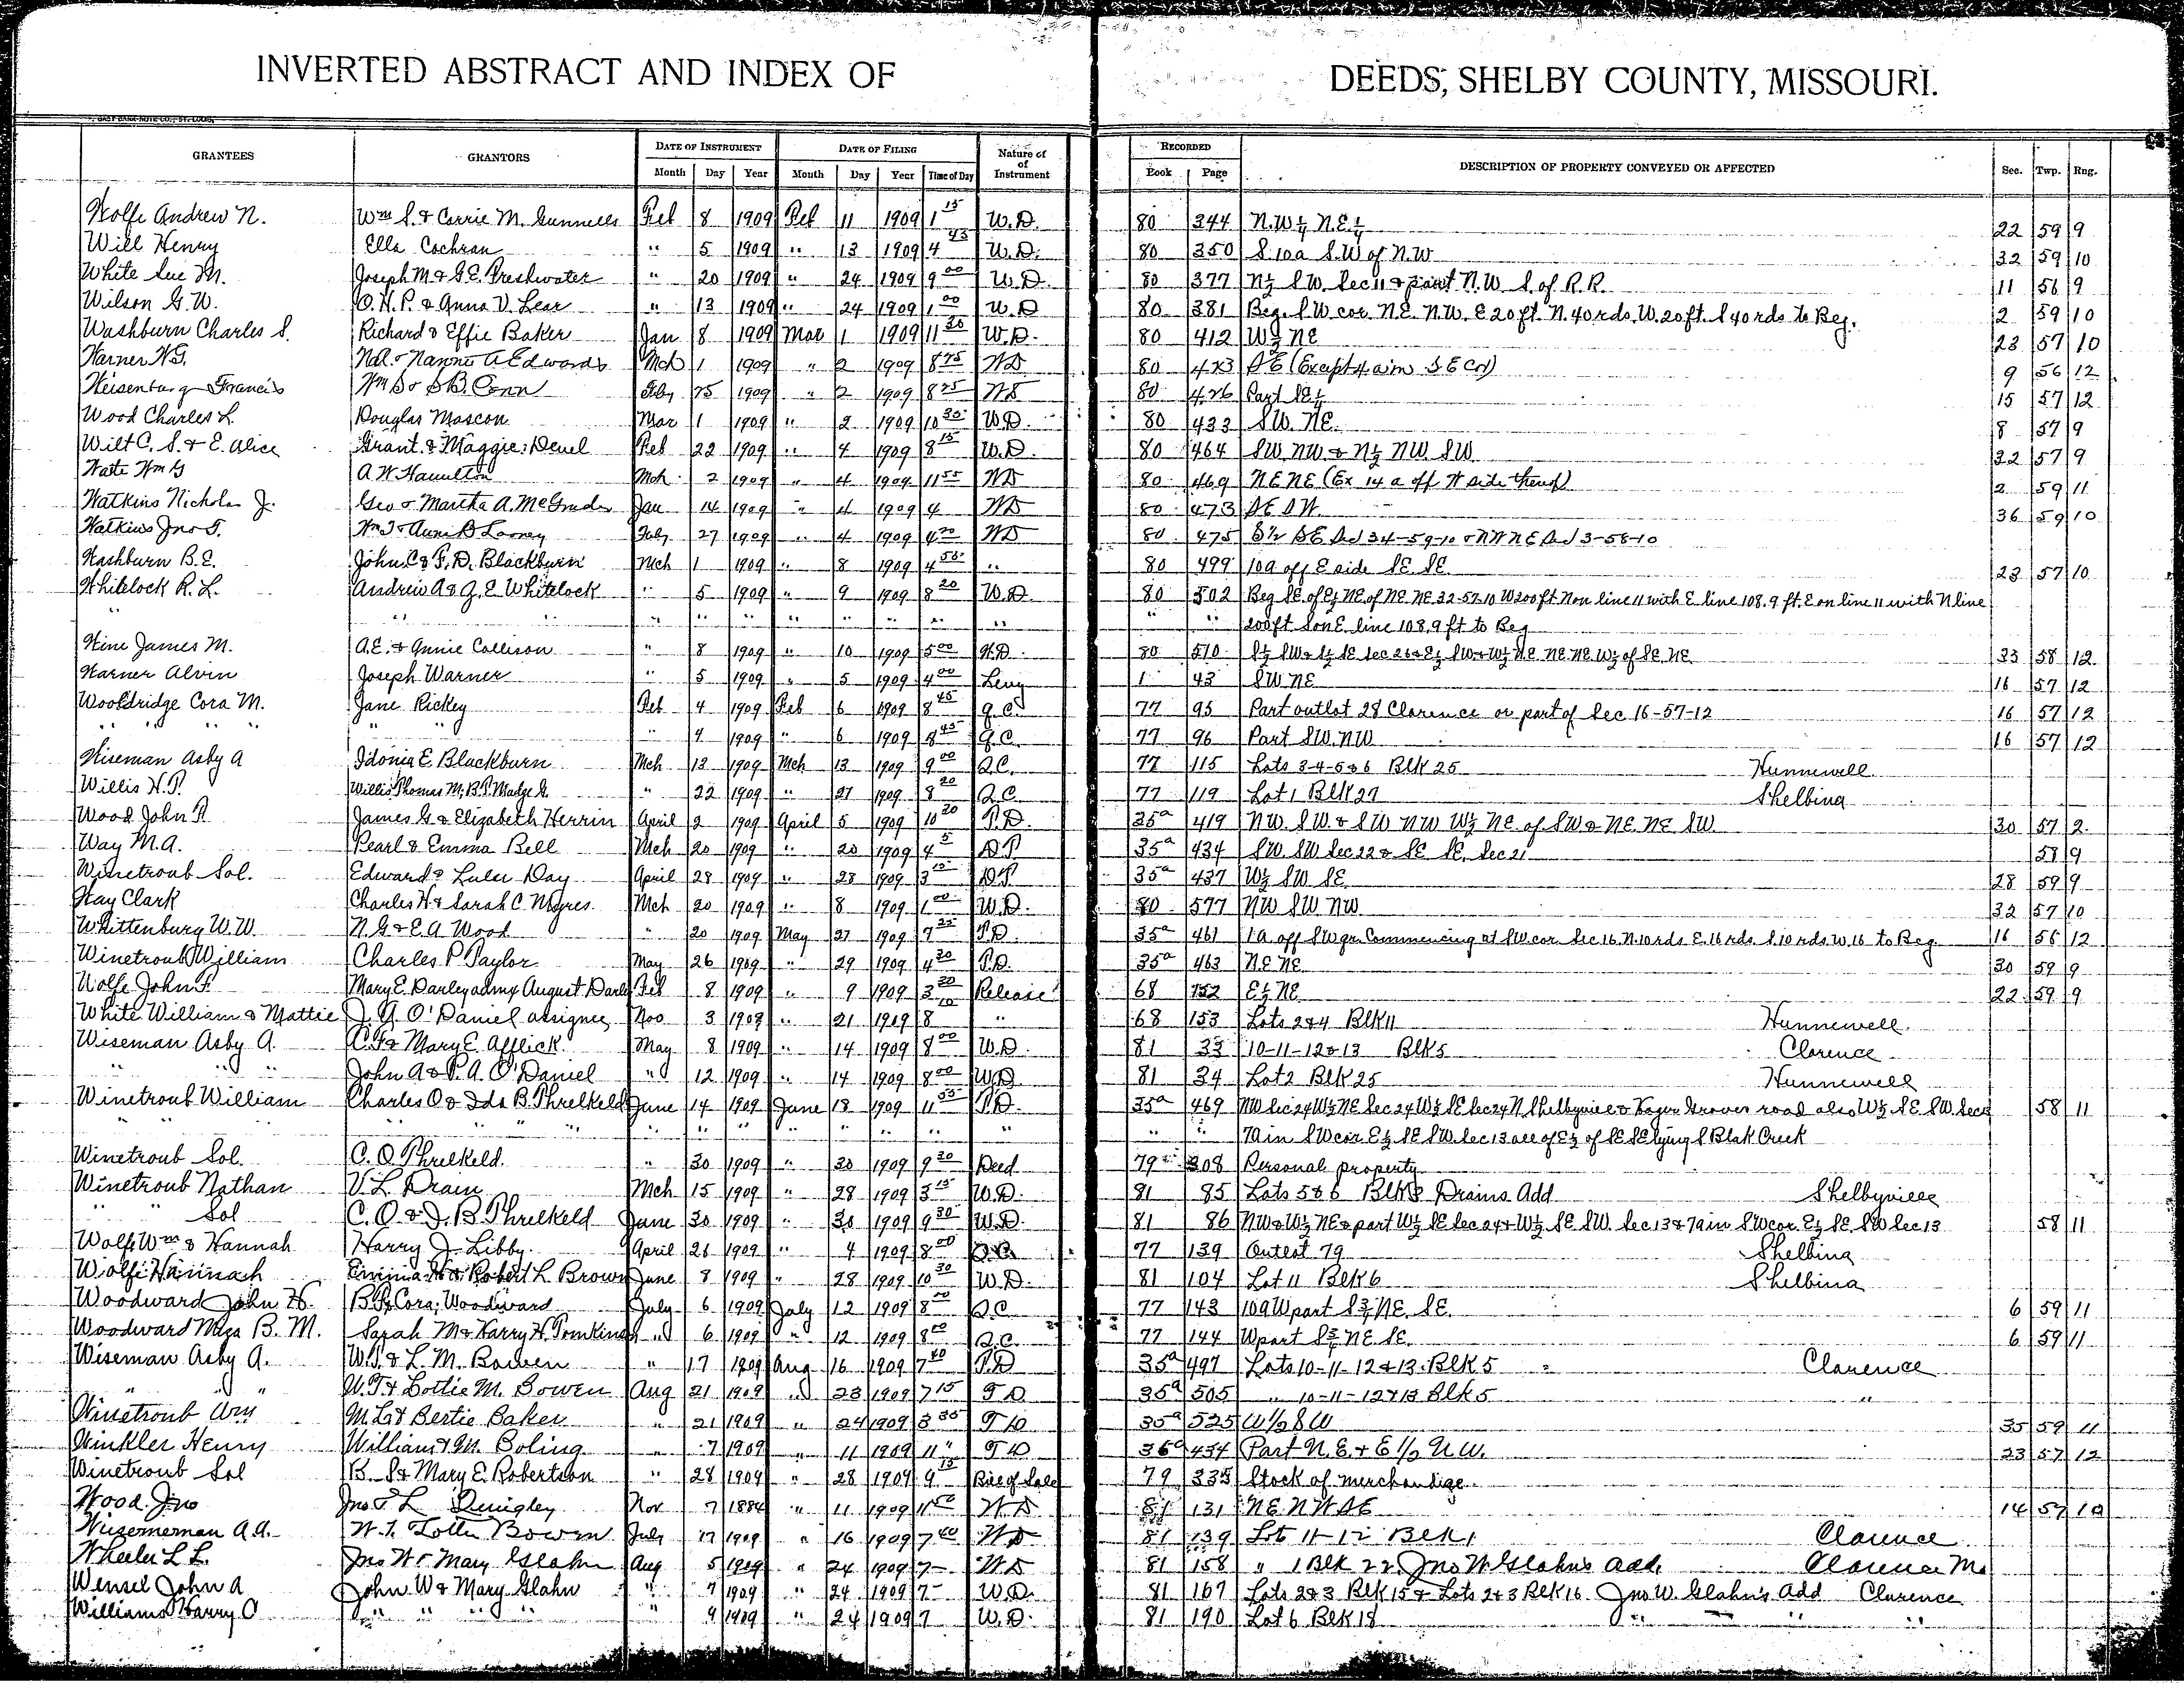 INVERTED ABSTRACT AND INDEX OF DEEDS, SHELBY COUNTY, MISSOURI.
GRANTEES GRANTORS DATE OF INSTRUMENT DATE OF FILING Nature of of Instrument RECORDED DESCRIPTION OF PROPERTY CONVEYED OR AFFECTED Sec. Twp. Rng.
Month Day Year Month Day Year Time of Day Book Page
Wolfe Andrew N. Wm S. & Carrie M. Gunnells Feb 8 1909 Feb 11 1909 1 15 W.D. 80 344 N.W¼ N.E¼ 22 59 9
Will Henry Ella Cochran " 5 1909 " 13 1909 4 45 W.D. 80 350 S. 10a S.W of N.W 32 59 10
White Sue M. Joseph M & S.E. Freshwater " 20 1909 " 24 1909 9 00 W.D. 80 377 N½ SW Sec 11 & part N.W S. of R.R. 11 56 9
Wilson G.W. O.H.P. & Anna V. Lear " 13 1909 " 24 1909 1 00 W.D 80 381 Beg. SW cor. NE. NW. E 20 ft. N. 40 rds. W. 20 ft. S 40 rds to Beg. 2 59 10
Washburn Charles S. Richard & Effie Baker Jan 8 1909 Mar 1 1909 11 30 W.D. 80 412 W½ NE 23 57 10
Warner W.G. N.A. & Nannie A Edwards Mch 1 1909 " 2 1909 8 25 WD 80 423 SE (Except 4a in SE cor) 9 56 12
Weisenburg Francis Wm S & S.B. Conn Feby 25 1909 " 2 1909 8 25 WD 80 426 Part SE¼ 15 57 12
Wood Charles L. Douglas Mascon Mar 1 1909 " 2 1909 10 30 W.D. 80 433 SW. NE. 8 57 9
Wilt C. S. & E. Alice Grant & Maggie Deuel Feb 22 1909 " 4 1909 8 15 W.D. 80 464 SW NW & N½ NW SW 32 57 9
Waite Wm G A.W. Hamilton Mch 2 1909 " 4 1909 11 55 WD 80 469 NE NE (Ex 14 a off W side thereof) 2 59 11
Watkins Nicholas J. Geo & Martha A. McGruder Jan 14 1909 " 4 1909 4 WD 80 473 SE SW. 36 59 10
Watkins Jno T. Wm J & Annie B Looney Feby 27 1909 " 4 1909 4 20 WD 80 475 S½ SE Sec 34-59-10 & NW NE Sec 3-58-10
Washburn B.E. John C & F.D. Blackburn Mch 1 1909 " 8 1909 4 50 " 80 499 10a off E side SE. SE. 23 57 10
Whitelock R.L. Andrew A & G.E Whitelock " 5 1909 " 9 1909 8 20 W.D. 80 502 Beg SE of E½ NE of NE NE 32-57-10 W200ft N on line 11 with E line 108.9 ft. E on line 11 with N line
" " " " " " " " " " " 200ft S on E. line 108.9 ft to Beg
Wine James M. A.E. & Annie Collison " 8 1909 " 10 1909 5 00 W.D. 80 510 S½ SW & S½ SE Sec 26 & E½ SW & W½ NE NE. NE. W½ of SE. NE 33 58 12
Warner Alvin Joseph Warner " 5 1909 " 5 1909 4 00 Levy 1 43 SW NE 16 57 12
Wooldridge Cora M. Jane Rickey Feb 4 1909 Feb 6 1909 8 45 Q.C. 77 95 Part outlot 28 Clarence or part of Sec 16-57-12 16 57 12
" " " " " " 4 1909 " 6 1909 8 45 Q.C. 77 96 Part SW. NW 16 57 12
Wiseman Asby A Idonia E. Blackburn Mch 13 1909 Mch 13 1909 9 00 Q.C. 77 115 Lots 3-4-5 & 6 Blk 25 Hunnewell
Willis H.P. Willis Thomas M, B.P. Madge G. " 22 1909 " 27 1909 8 20 Q.C. 77 119 Lot 1 Blk 27 Shelbina
Wood John R James G. & Elizabeth Herrin April 2 1909 April 5 1909 10 20 T.D. 35a 419 NW. SW. & SW NW W½ NE of SW & NE. NE SW. 30 57 2
Way M.A. Pearl & Emma Bell Mch 20 1909 " 20 1909 4 5 DT 35a 434 SW. SW Sec 22 & SE SE. Sec 21 58 9
Winetroub Sol. Edward & Lulu Day April 28 1909 " 28 1909 3 D.T. 35a 437 W½ SW SE 28 59 9
Way Clark Charles H & Sarah C. Moyres Mch 20 1909 " 8 1909 1 00 W.D. 80 577 NW SW NW 32 57 10
Whittenburg W.W. N.G & E.A. Wood " 20 1909 May 27 1909 7 25 T.D. 35a 461 1A. off SW qr. Commencing at SW cor Sec 16. N. 10 rds E. 16 rds. S. 10 rds W. 16 to Beg. 16 56 12
Winetroub William Charles P. Taylor May 26 1909 " 29 1909 4 30 T.D. 35a 463 NE NE 30 59 9
Wolfe John F. Mary E. Darley admx August Darley Feb 8 1909 " 9 1909 3 30 Release 68 152 E½ NE 22 59 9
White William & Mattie J. A O'Daniel assignee Nov 3 1908 " 21 1909 8 10 " 68 153 Lots 2 & 4 Blk 11 Hunnewell.
Wiseman Asby A. C.F & Mary E. Afflick. May 8 1909 " 14 1909 8 00 W.D. 81 33 10-11-12 & 13 Blk 5 Clarence
" " John A & P.A. O'Daniel " 12 1909 " 14 1909 8 00 W.D 81 34 Lot 2 Blk 25 Hunnewell
Winetroub William Charles O & Ida B. Threlkeld June 14 1909 June 18 1909 11 55 T.D. 35a 469 NW Sec 24 W½ NE Sec 24 W½ SE Sec 24 N Shelbyville & Hager Groves road also W½ SE SW. Sec 13 58 11
" " " " " " " " " " " 7A in SW cor E½ SE SW. Sec 13 all of E½ of SE SE lying S Blak Creek
Winetroub Sol. C. O. Threlkeld " 30 1909 " 30 1909 9 30 Deed 79 308 Personal property
Winetroub Nathan V. L. Drain Mch 15 1909 " 28 1909 3 15 W.D. 81 85 Lots 5 & 6 Blk 8 Drains Add Shelbyville
" Sol C. O. & J. B Threlkeld June 30 1909 " 30 1909 9 30 W.D. 81 86 NW & W½ NE & part W½ SE Sec 24 & W½ SE SW. Sec 13 & 7a in SW cor. E½ SE. SW Sec 13 58 11
Wolfe Wm & Hannah Harry J. Libby. April 26 1909 " 4 1909 8 00 Q.C. 77 139 Outlot 79 Shelbina
Wolfe Hannah Emma H & Robert L. Brown June 8 1909 " 28 1909 10 30 W.D. 81 104 Lot 11 Blk 6 Shelbina
Woodward John H. B.F. & Cora Woodward July 6 1909 July 12 1909 8 00 Q.C 77 143 10a W part NE. SE. 6 59 11
Woodward B. M. Sarah M & Harry H. Tomkins " 6 1909 " 12 1909 8 00 Q.C. 77 144 W part NE SE. 6 59 11
Wiseman Asby A. W.T. & L. M. Bowen " 17 1909 Aug 16 1909 7 40 T.D 35a 497 Lots 10-11-12 & 13 Blk 5 Clarence
" " " W.T & Lottie M. Bowen Aug 21 1909 " 23 1909 7 15 T D. 35a 505 " 10-11-12 & 13 Blk 5 "
Winetroub Wm M. L. & Bertie Baker " 21 1909 " 24 1909 3 35 T D 35a 525 W 1/2 S W 35 59 11
Winkler Henry William & M. Boling " 7 1909 " 11 1909 11 T D 454 Part N.E. & E 1/2 N W. 23 57 12
Winetroub Sol B. S & Mary E. Robertson " 28 1909 " 28 1909 9 15 Bill of Sale 79 335 Stock of merchandise
Wood Jno Jno T. L Quigley Nov 7 1884 " 11 1909 11 50 W D 81 131 NE NW SE 14 57 10
Wisemerman A.A. W.T. Lottie Bowen July 17 1909 " 16 1909 7 40 WD 81 139 Lot 11-12 Blk 1 Clarence
Wheeler L L. Jno W & Mary Glahn Aug 5 1909 " 24 1909 7- WD 81 158 " 1 Blk 22 Jno W Glahn's Add. Clarence Mo
Wensel John A John W & Mary Glahn " 7 1909 " 24 1909 7- W.D. 81 167 Lots 2 & 3 Blk 15 & Lots 2 & 3 Blk 16 Jno W. Glahn's Add Clarence
Williams Harry O " " " " " 9 1909 " 24 1909 7 W.D. 81 190 Lot 6 Blk 18 " " "